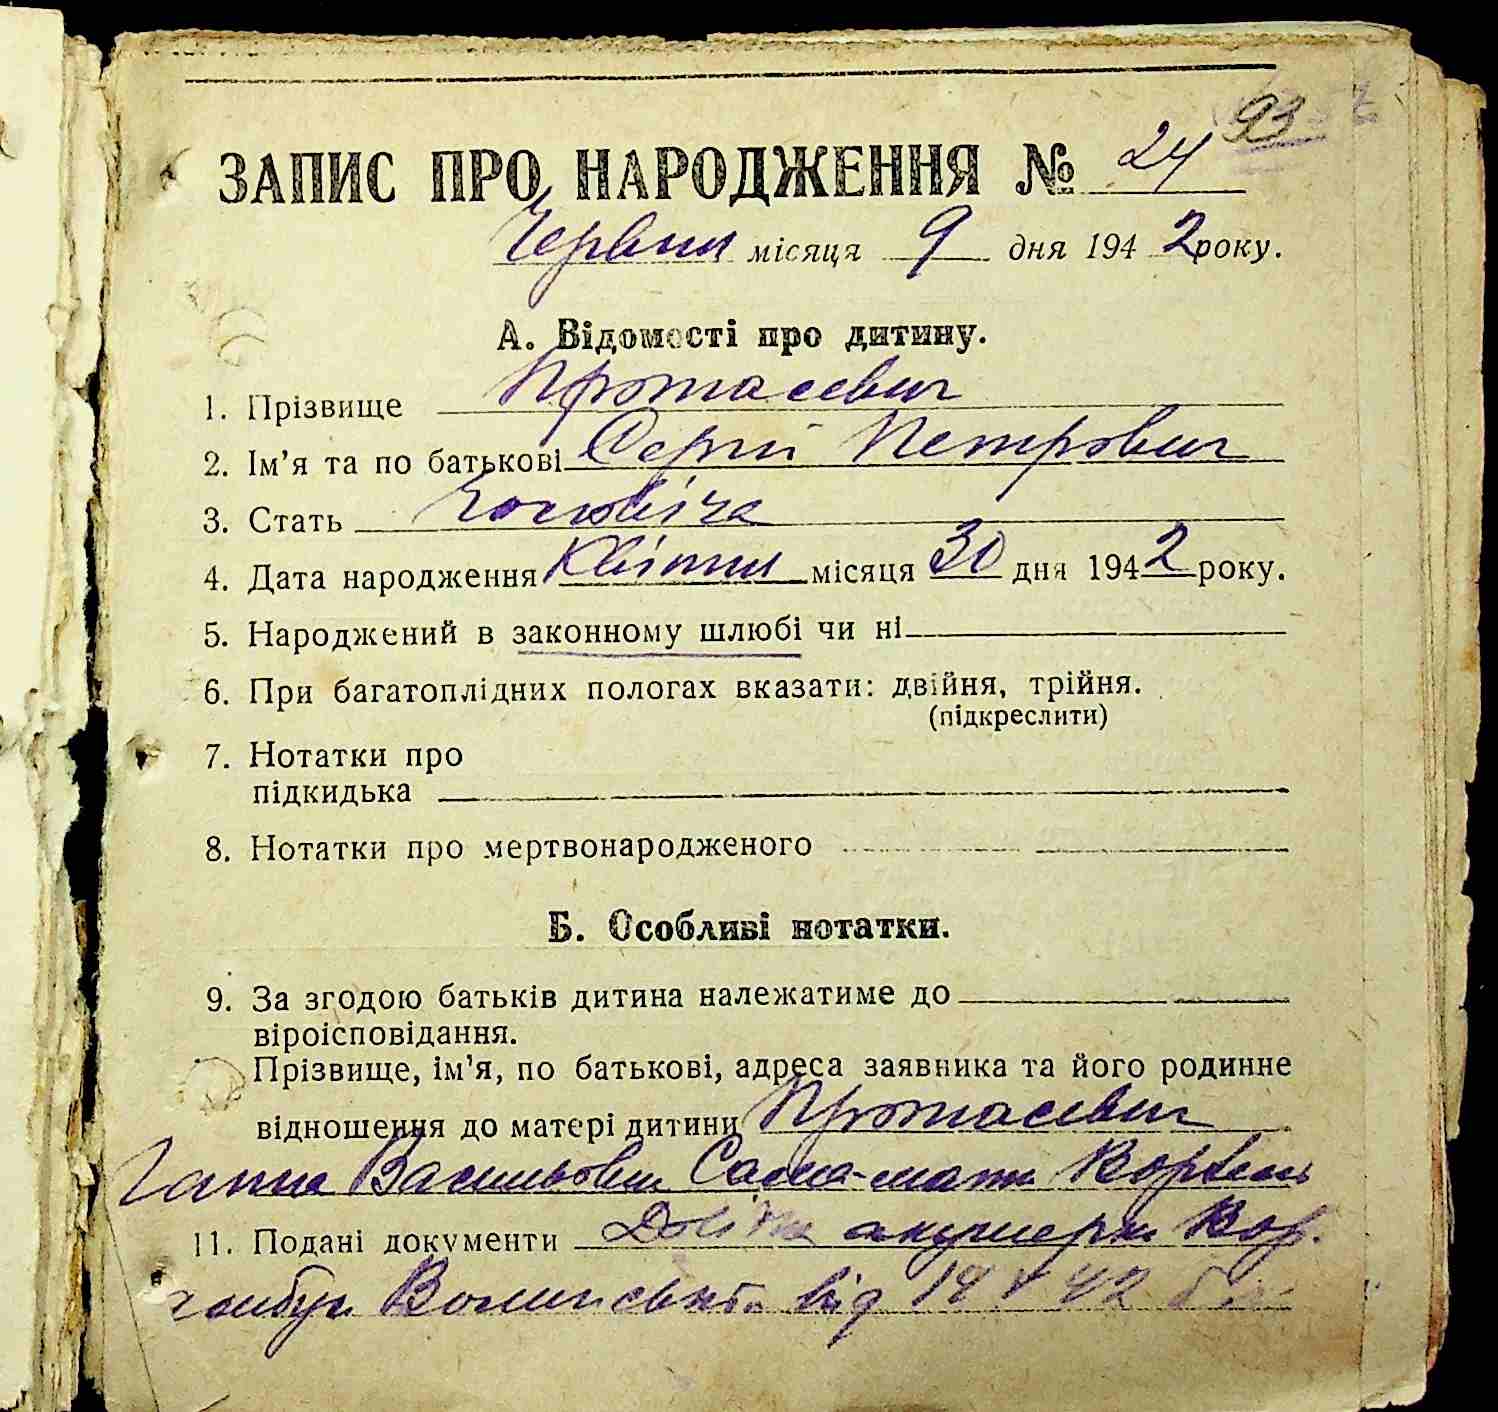 93
ЗАПИС ПРО НАРОДЖЕННЯ № 24
Червня місяця 9 дня 1942 року.
А. Відомості про дитину.
1. Прізвище Протасевич
2. Ім'я та по батькові Сергій Петрович
3. Стать чоловіча
4. Дата народження Квітня місяця 30 дня 1942 року.
5. Народжений в законному шлюбі чи ні
6. При багатоплідних пологах вказати: двійня, трійня.
(підкреслити)
7. Нотатки про
підкидька
8. Нотатки про мертвонародженого
Б. Особливі нотатки.
9. За згодою батьків дитина належатиме до
віроісповідання.
Прізвище, ім'я, по батькові, адреса заявника та його родинне
відношення до матері дитини Протасевич
Ганна Васильовна Сама-мати
11. Подані документи акушерки
від 19 42